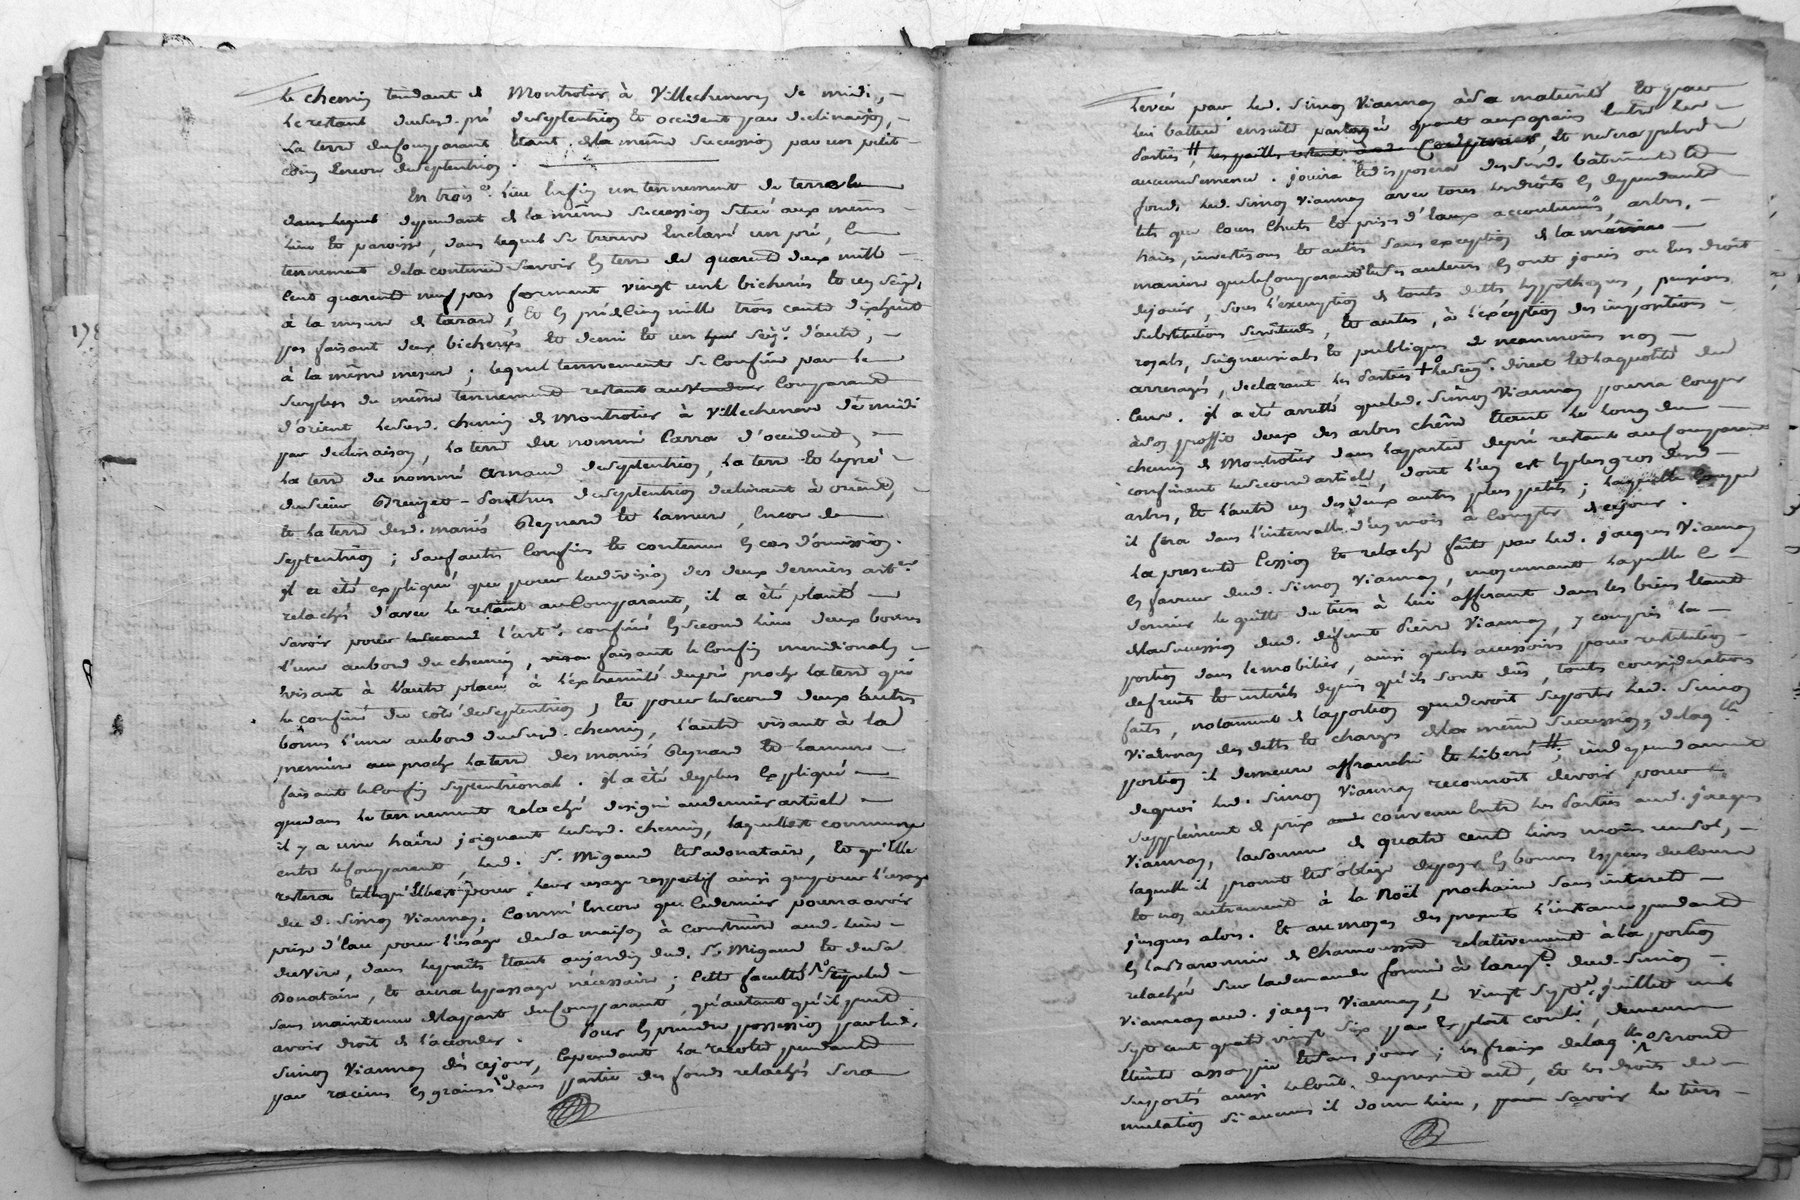 Le chemin tendant de Montrotier à Villecheneve de midi,
le restant dudud. pré de septentrion et occident par declinaison,
la terre du Comparant étant de la même Succession par un petit
coin, encore de septentrion.
En trois.e lieu enfin un tennement de terre
dépendant de la même succession situé aux mêmes
lieu et paroisse, dans lequel se trouve enclavé un pré, le
tennement de la contenue Savoir en terre de quarante deux mille
cent quarante neuf pas formants vingt une bicherées et un
à la mesure de tarare, et en pré de Cinq mille trois cents dix sept
pas faisant deux bicherées et demi et un d'autre,
à la même mesure; lequel tennement se Confine par le
Surplus du même tennement restant au Comparant
d'orient ledud. chemin de Montrotier à Villecheneve de midi
par declinaison, la terre du nommé Carra d'occident,
la terre du nommé Arnaud de septentrion, la terre et le pré
du sieur de septentrion declinant à orient,
et la terre des d. mariés Reynard et Lamure, encore de
Septentrion; Sauf autres Confins et contenue en cas d'omission.
il a été expliqué que pour la division des deux derniers art.es
relachés d'avec le restant au Comparant, il a été planté
Savoir pour l'art. confiné en second lieu deux bornes
l'une au bord du chemin, faisant le Confin meridional,
visant à l'autre placée à l'extremité du pré proche la terre qui
le confine du côté de septentrion, et pour le second deux autres
bornes l'une au bord dudud. chemin, l'autre visant à la
premiere au proche la terre des mariés Reynard et Lamure
faisant le Confin Septentrional. il a été de plus Expliqué
que dans le tennement relaché designé au dernier article
il y a une haïe joignant ledud. chemin, laquelle est commune
entre le Comparant, led. S. Migaud et sa donataire, et qu'elle
restera telle qu'elle est pour leur usage respectif ainsi que pour l'usage
du d. Simon Viannay; Comme encore que ce dernier pourra avoir
prise d'eau pour l'usage de sa maison à construire aud. lieu
du Vire, dans le puits étant au jardin dud. S. Migaud et de sa
Donataire, et aura le passage nécessaire; cette faculté stipulée
sans maintenue de la part du Comparant, qu'autant qu'il peut
avoir droit de l'accorder. Pour en prendre possession par led.
Simon Viannay dès ce jour, cependant la recolte pendante
par racines en grains dans partie des fonds relachés sera
levée par led. Simon Viannay à sa maturité et par
lui battue ensuite partagée quant aux grains entre les
parties, et ne sera
aucunement. jouira et disposera desdud. bâtiments et
fonds led. Simon Viannay avec tous les droits en dependants
tels que cours chutes et prises d'eaux accoutumés, arbres,
haies, investisons et autres sans exception de la même
maniere que le Comparant et ses auteurs en ont jouis ou eu droit
de jouir, sous l'exemption de toutes dettes hypotheques, pensions
substitutions servitudes, et autres, à l'exception des impositions
royales, seigneuriales et publiques de neanmoins non
arreragés, declarant les parties direct et la quotité du
Cens. il a été arretté que led. Simon Viannay pourra Couper
à son proffit deux des arbres chêne étant le long du
chemin de Montrotier dans la partie de pré restant au Comparant
confinant le second article, dont l'un est le plus gros desd.
arbres, et l'autre un des deux autres plus petits; laquelle Coupe
il fera dans l'intervalle d'un mois à compter de ce jour.
La presente Cession et relache faite par led. jacques Viannay
en faveur dud. Simon Viannay, moyennant laquelle ce
dernier le quitte du tiers à lui afferant dans les biens étant
de la succession dud. défunt Pierre Viannay, y compris la
portion dans le mobilier, ainsi que les accessoirs pour restitution
de fruits et intérêts depuis qu'ils sont dûs, toutes considerations
faites, notament de la portion que devoit supporter led. Simon
Viannay des dettes et charges de la même succession, de laq.lle
portion il demeure affranchi et liberé, independamment
de quoi led. Simon Viannay reconnoit devoir pour
Supplément de prix convenu entre les parties aud. jacques
Viannay, la somme de quatre cent livres moins un sol,
laquelle il promet et s'oblige de payer en bonnes Especes du Cours
et non autrement à la Noël prochaine sans interets
jusques alors. Et au moyen des presents l'instance pendante
en la Baronnie de Chamousset relativement à la portion
relachée sur la demande formée à la req.te dud. Simon
Viannay aud. jacques Viannay, le vingt sept juillet mil
sept cent quatre vingt six par Exploit contr., demeure
éteinte assoupie et sans jour; les fraix de laq.lle seront
supportés ainsi le coût du present acte, et les droits de
mutation si aucuns il donne lieu, savoir le tiers